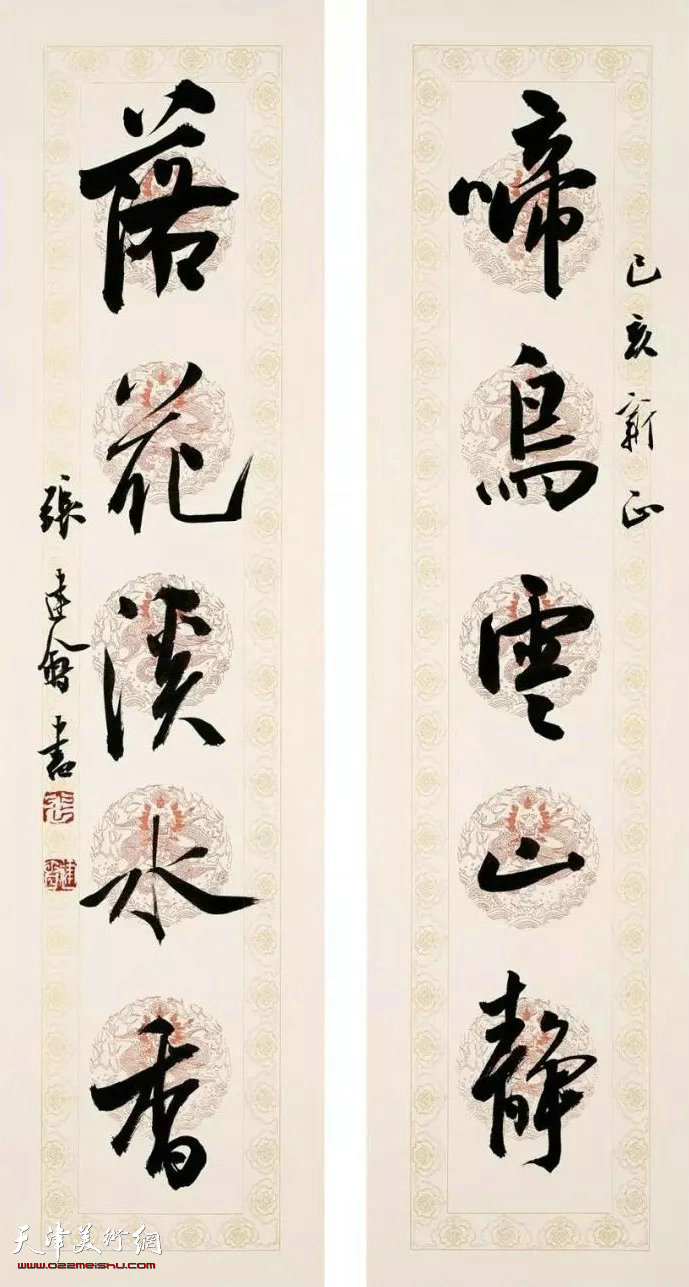 啼鳥雲山靜
己亥新正
落花溪水香
張建會書
天津美術網
www.022meishu.com